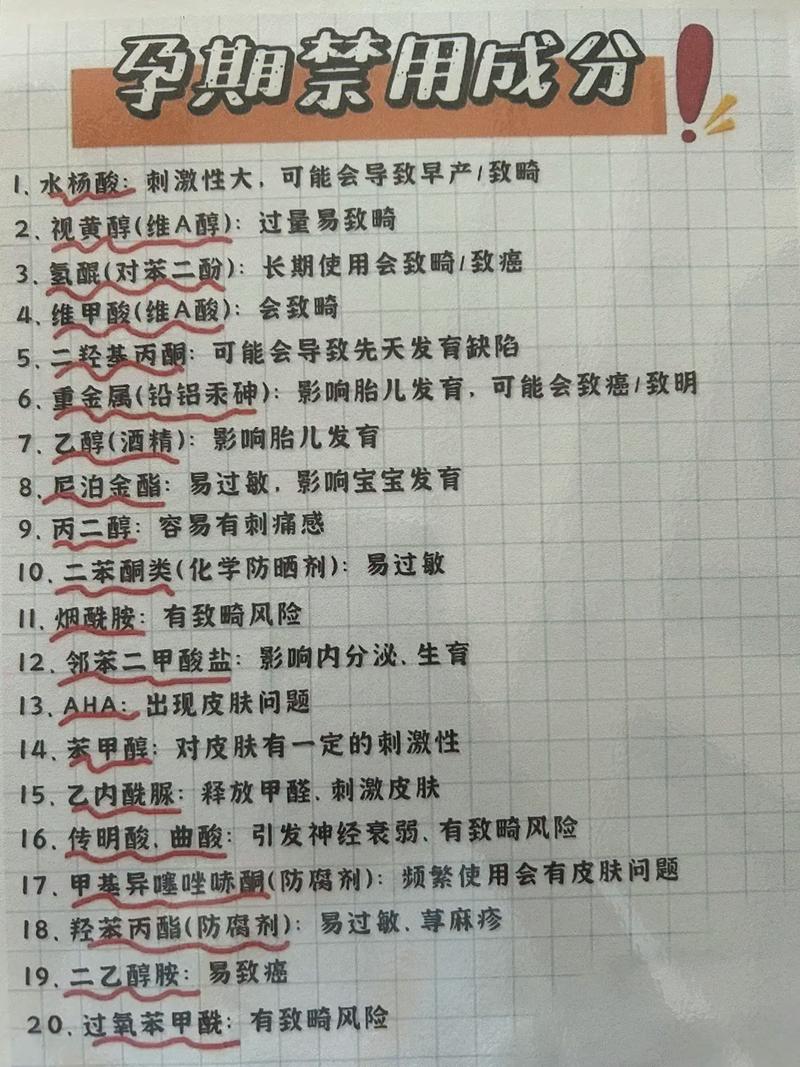 孕期禁用成分!
1、水杨酸：刺激性大，可能会导致早产/致畸
2、视黄醇(维A醇)：过量易致畸
3、氢醌(对苯二酚)：长期使用会致畸/致癌
4、维甲酸(维A酸)：会致畸
5、二羟基丙酮：可能会导致先天发育缺陷
6、重金属(铅铝汞砷)：影响胎儿发育，可能会致癌/致明
7、乙醇(酒精)：影响胎儿发育
8、尼泊金酯：易过敏，影响宝宝发育
9、丙二醇：容易有刺痛感
10、二苯酮类(化学防晒剂)：易过敏
11、烟酰胺：有致畸风险
12、邻苯二甲酸盐：影响内分泌、生育
13、AHA：出现皮肤问题
14、苯甲醇：对皮肤有一定的刺激性
15、乙内酰脲：释放甲醛、刺激皮肤
16、传明酸、曲酸：引发神经衰弱、有致畸风险
17、甲基异噻唑哧酮(防腐剂)：频繁使用会有皮肤问题
18、羟苯丙酯(防腐剂)：易过敏、荨麻疹
19、二乙醇胺：易致癌
20、过氧苯甲酰：有致畸风险